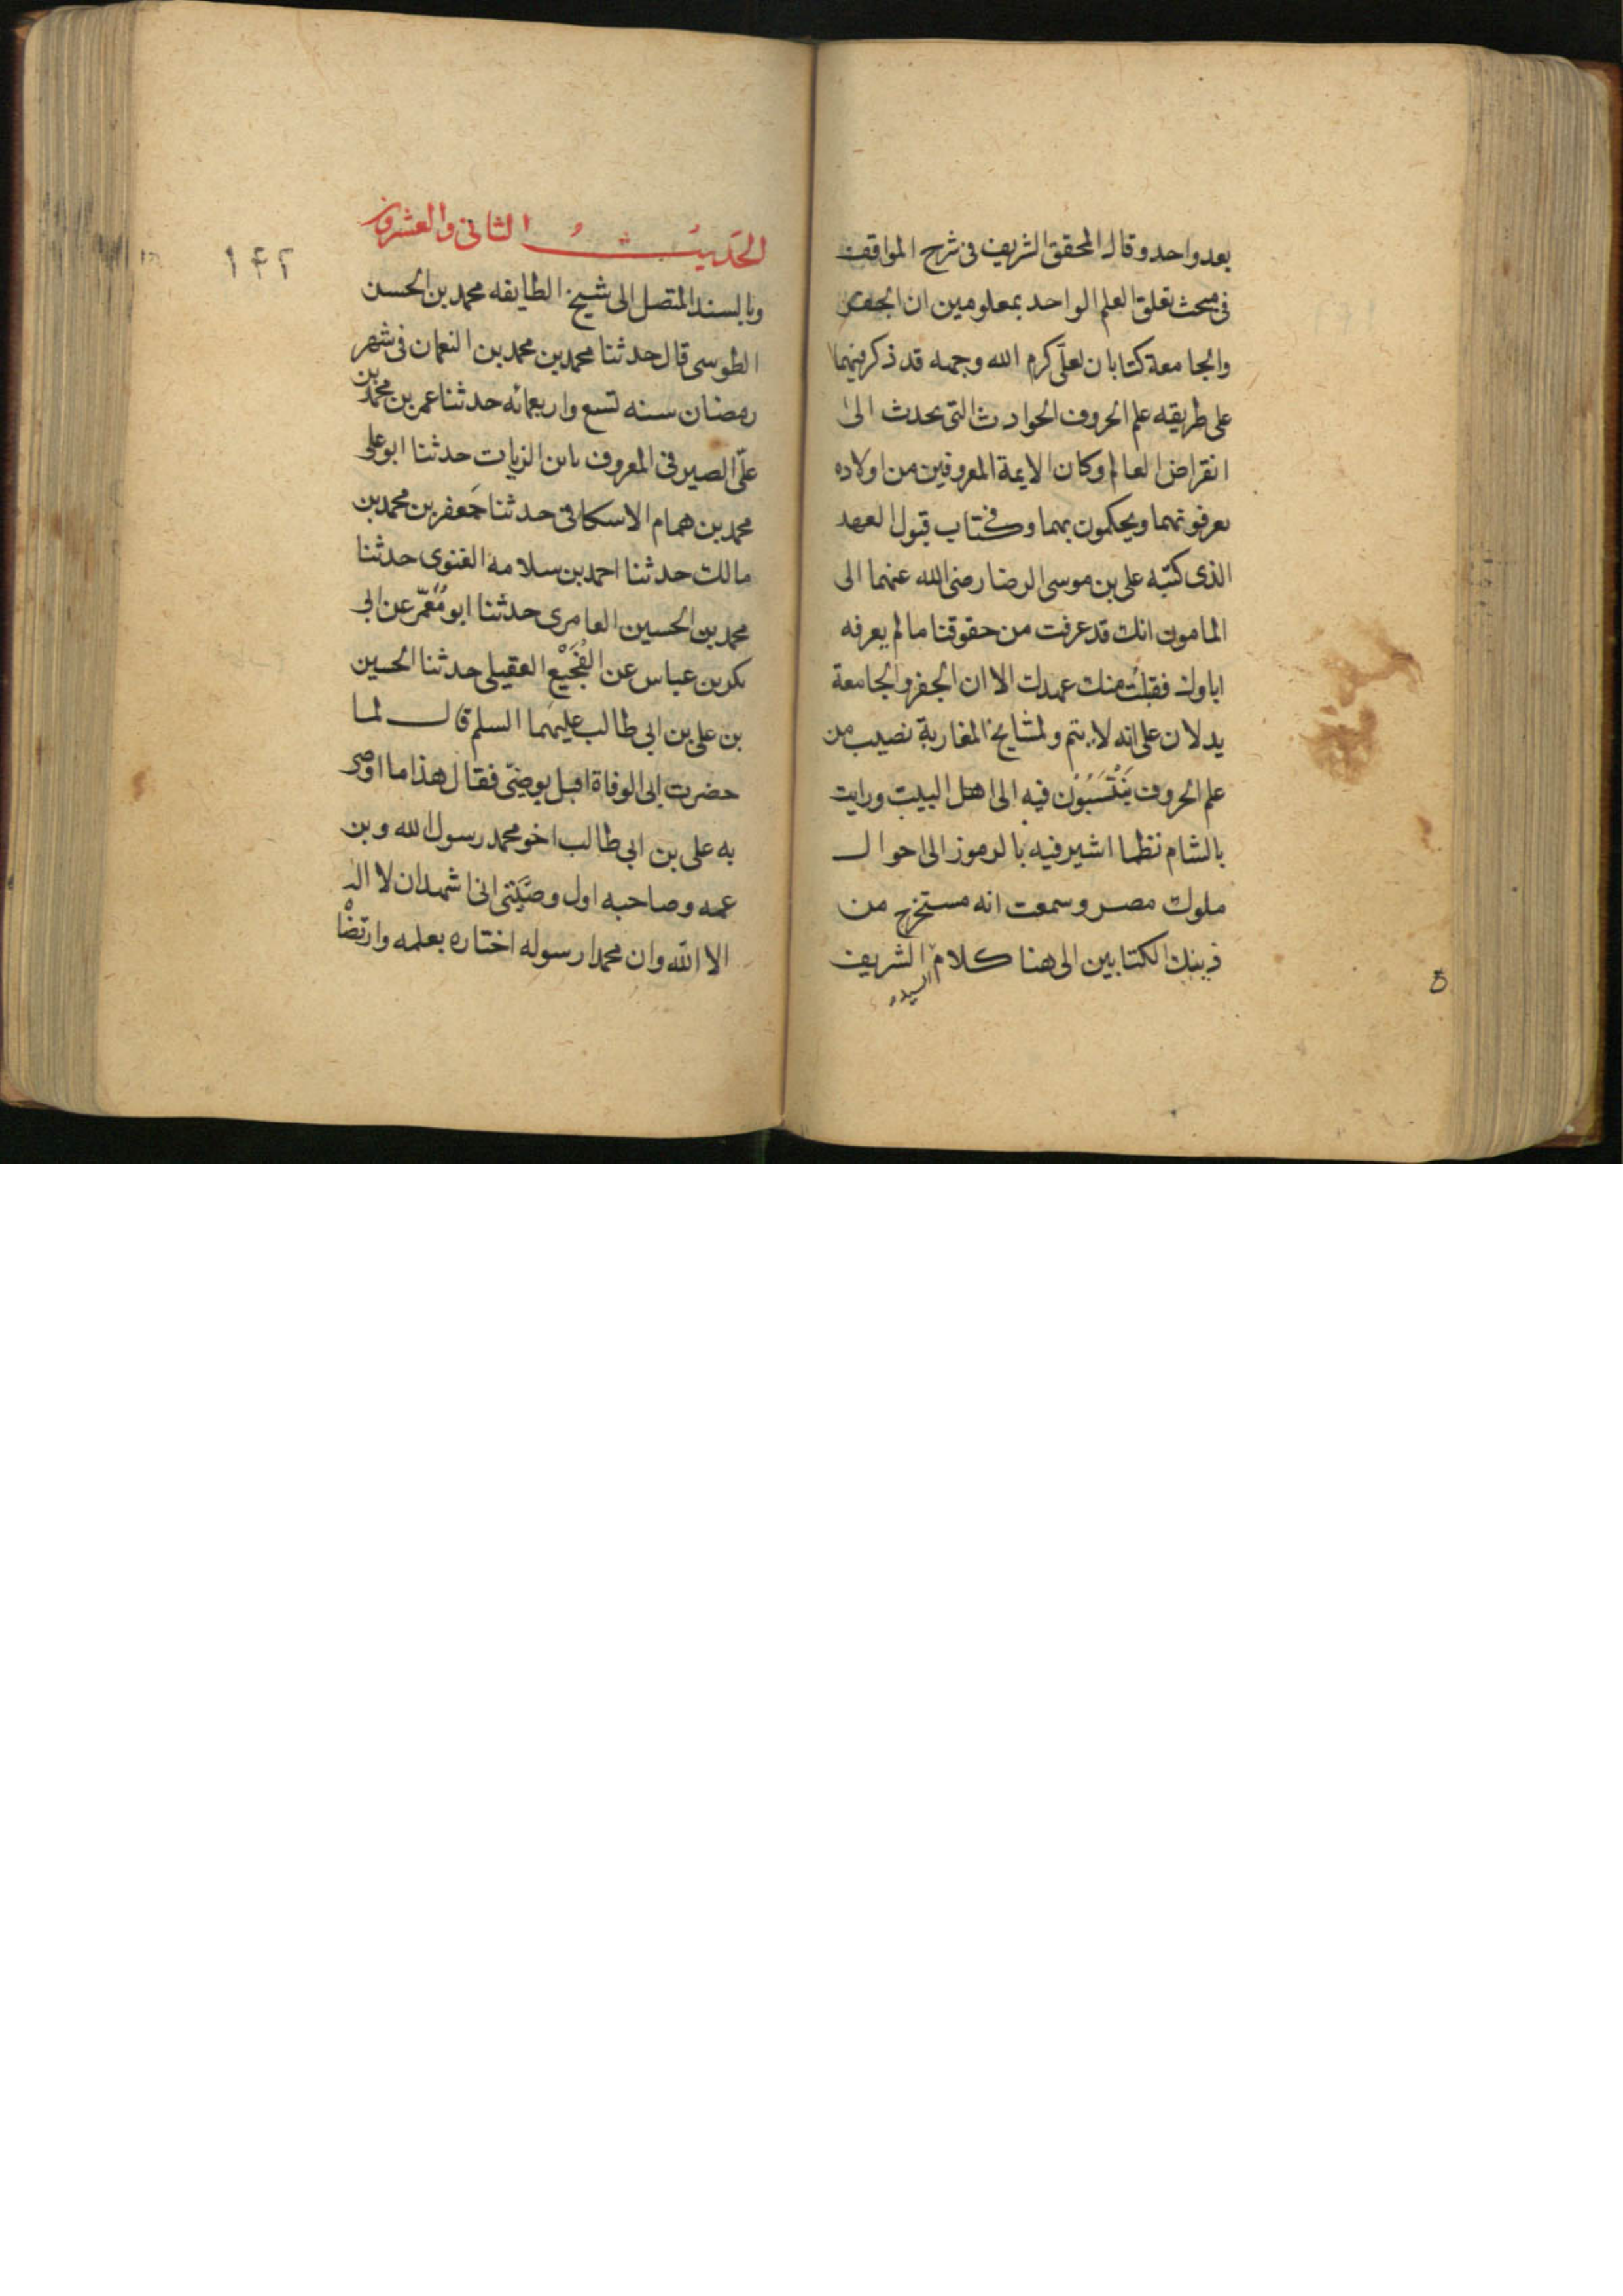 بعد واحد وقال المحقق الشريف فى شرح المواقف
فى مبحث تعلق العلم الواحد بمعلومين ان الجفر
والجامعة كتابان لعلّى كرم الله وجهه قد ذكر فيهما
على طريقه علم الحروف الحوادث التى تحدث الى
انقراض العالم وكان الايمة المعروفين من اولاده
يعرفونهما ويحكمون بهما وفى كتاب قبول العهد
الذى كتبه على بن موسى الرضا رضى الله عنهما الى
المامون انك قد عرفت من حقوقنا ما لم يعرفه
اباوك فقبلت منك عهدك الا ان الجفر والجامعة
يدلان على انه لا يتم ولمشايخ المغاربة نصيب من
علم الحروف يَنْتَسَبُوْن فيه الى اهل البيت ورايت
بالشام نظما اشير فيه بالرموز الى احوال
ملوك مصر وسمعت انه مستخرج من
ذينك الكتابين الى هنا كلام الشريف
السيد
الحَديثُ الثانى والعشرون
١۴٢
وبالسند المتصل الى شيخ الطايفه محمد بن الحسن
الطوسى قال حدثنا محمد بن محمد بن النعمان فى شهر
رمضان سنه تسع واربعمائه حدثنا عمر بن محمد بن
علّى الصيرفى المعروف بابن الزيات حدثنا ابو على
محمد بن همام الاسكافى حدثنا جَعفر بن محمد بن
مالك حدثنا احمد بن سلامه الغنوى حدثنا
محمد بن الحسين العامرى حدثنا ابو مُعَمّر عن ابى
بكر بن عباس عن الفُجَيْع العقيلى حدثنا الحسين
بن على بن ابى طالب عليهما السلم قال لما
حضرت ابى الوفاة اقبل يوصى فقال هذا ما اوصى
به على بن ابى طالب اخو محمد رسول الله وبن
عمه وصاحبه اول وصَيتى انى اشهد ان لا اله
الا الله وان محمدا رسوله اختاره بعلمه وارتضا